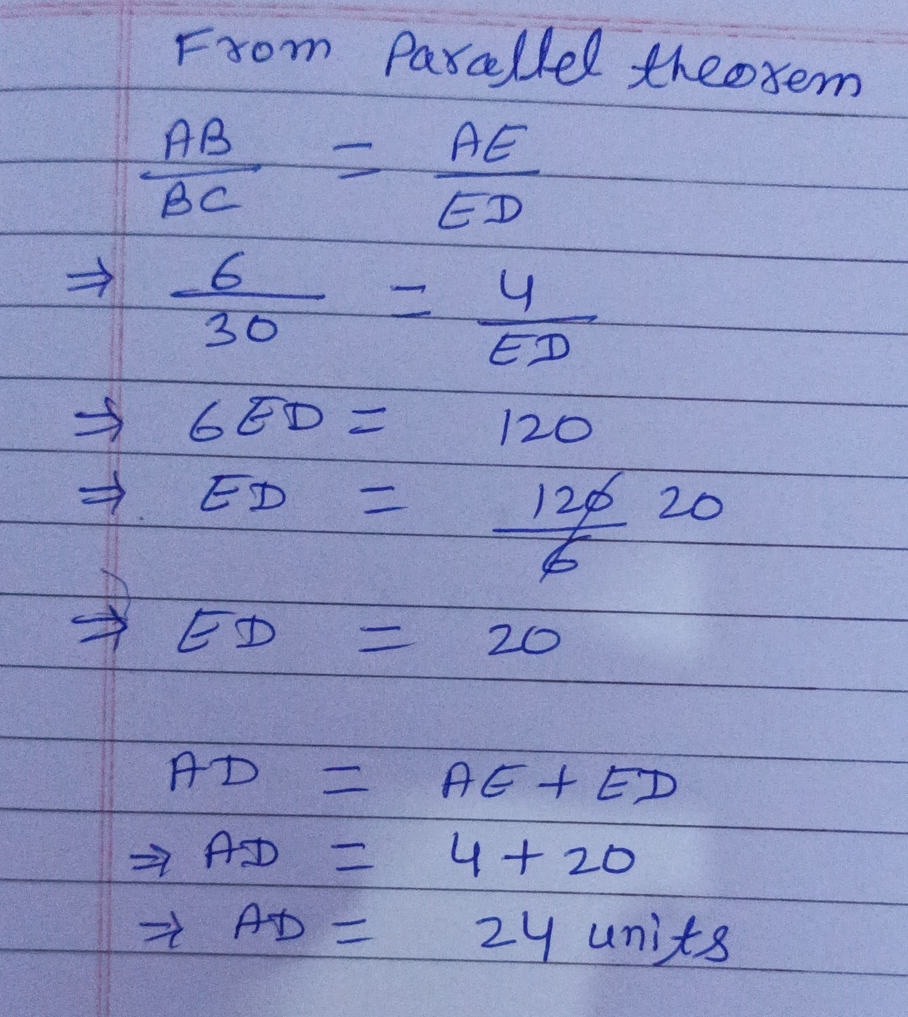 From Parallel theorem
AB/BC = AE/ED
⇒ 6/30 = 4/ED
⇒ 6ED = 120
⇒ ED = 120/6 20
⇒ ED = 20
AD = AE + ED
⇒ AD = 4 + 20
⇒ AD = 24 units